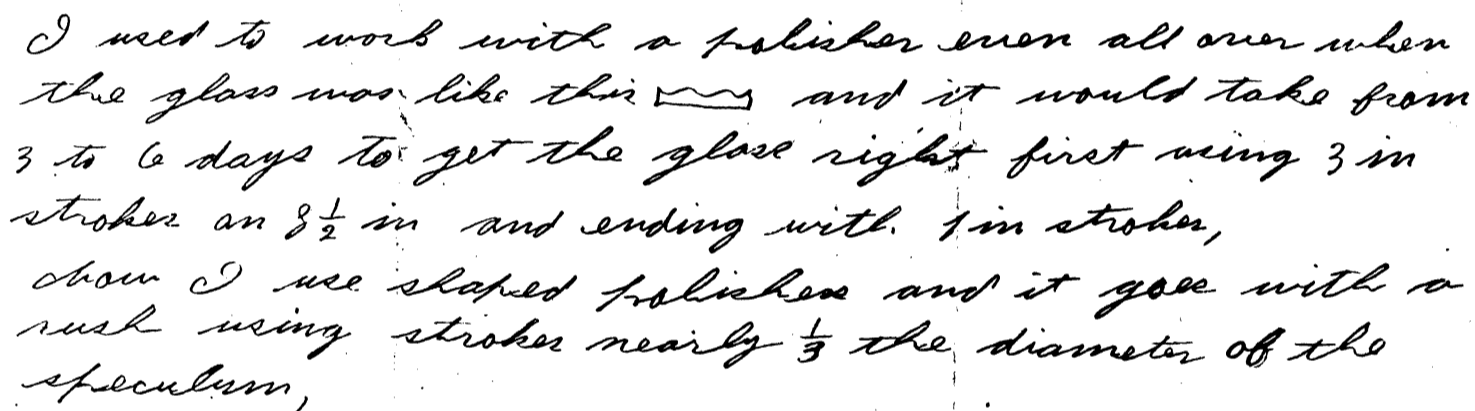 I used to work with a polisher even all over when
the glass was like this and it would take from
3 to 6 days to get the glass right first using 3 in
strokes on 8½ in and ending with 1 in strokes,
Now I use shaped polishers and it goes with a
rush using strokes nearly ⅓ the diameter of the
speculum,